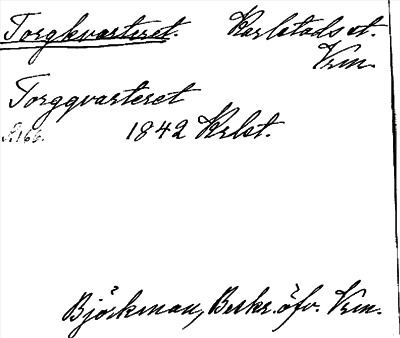 Torgkvarteret. Karlstads st.
Vrm.
Torgqvarteret
R166. 1842 Krlst.
Björkman, Beskr. öfv. Vrm.